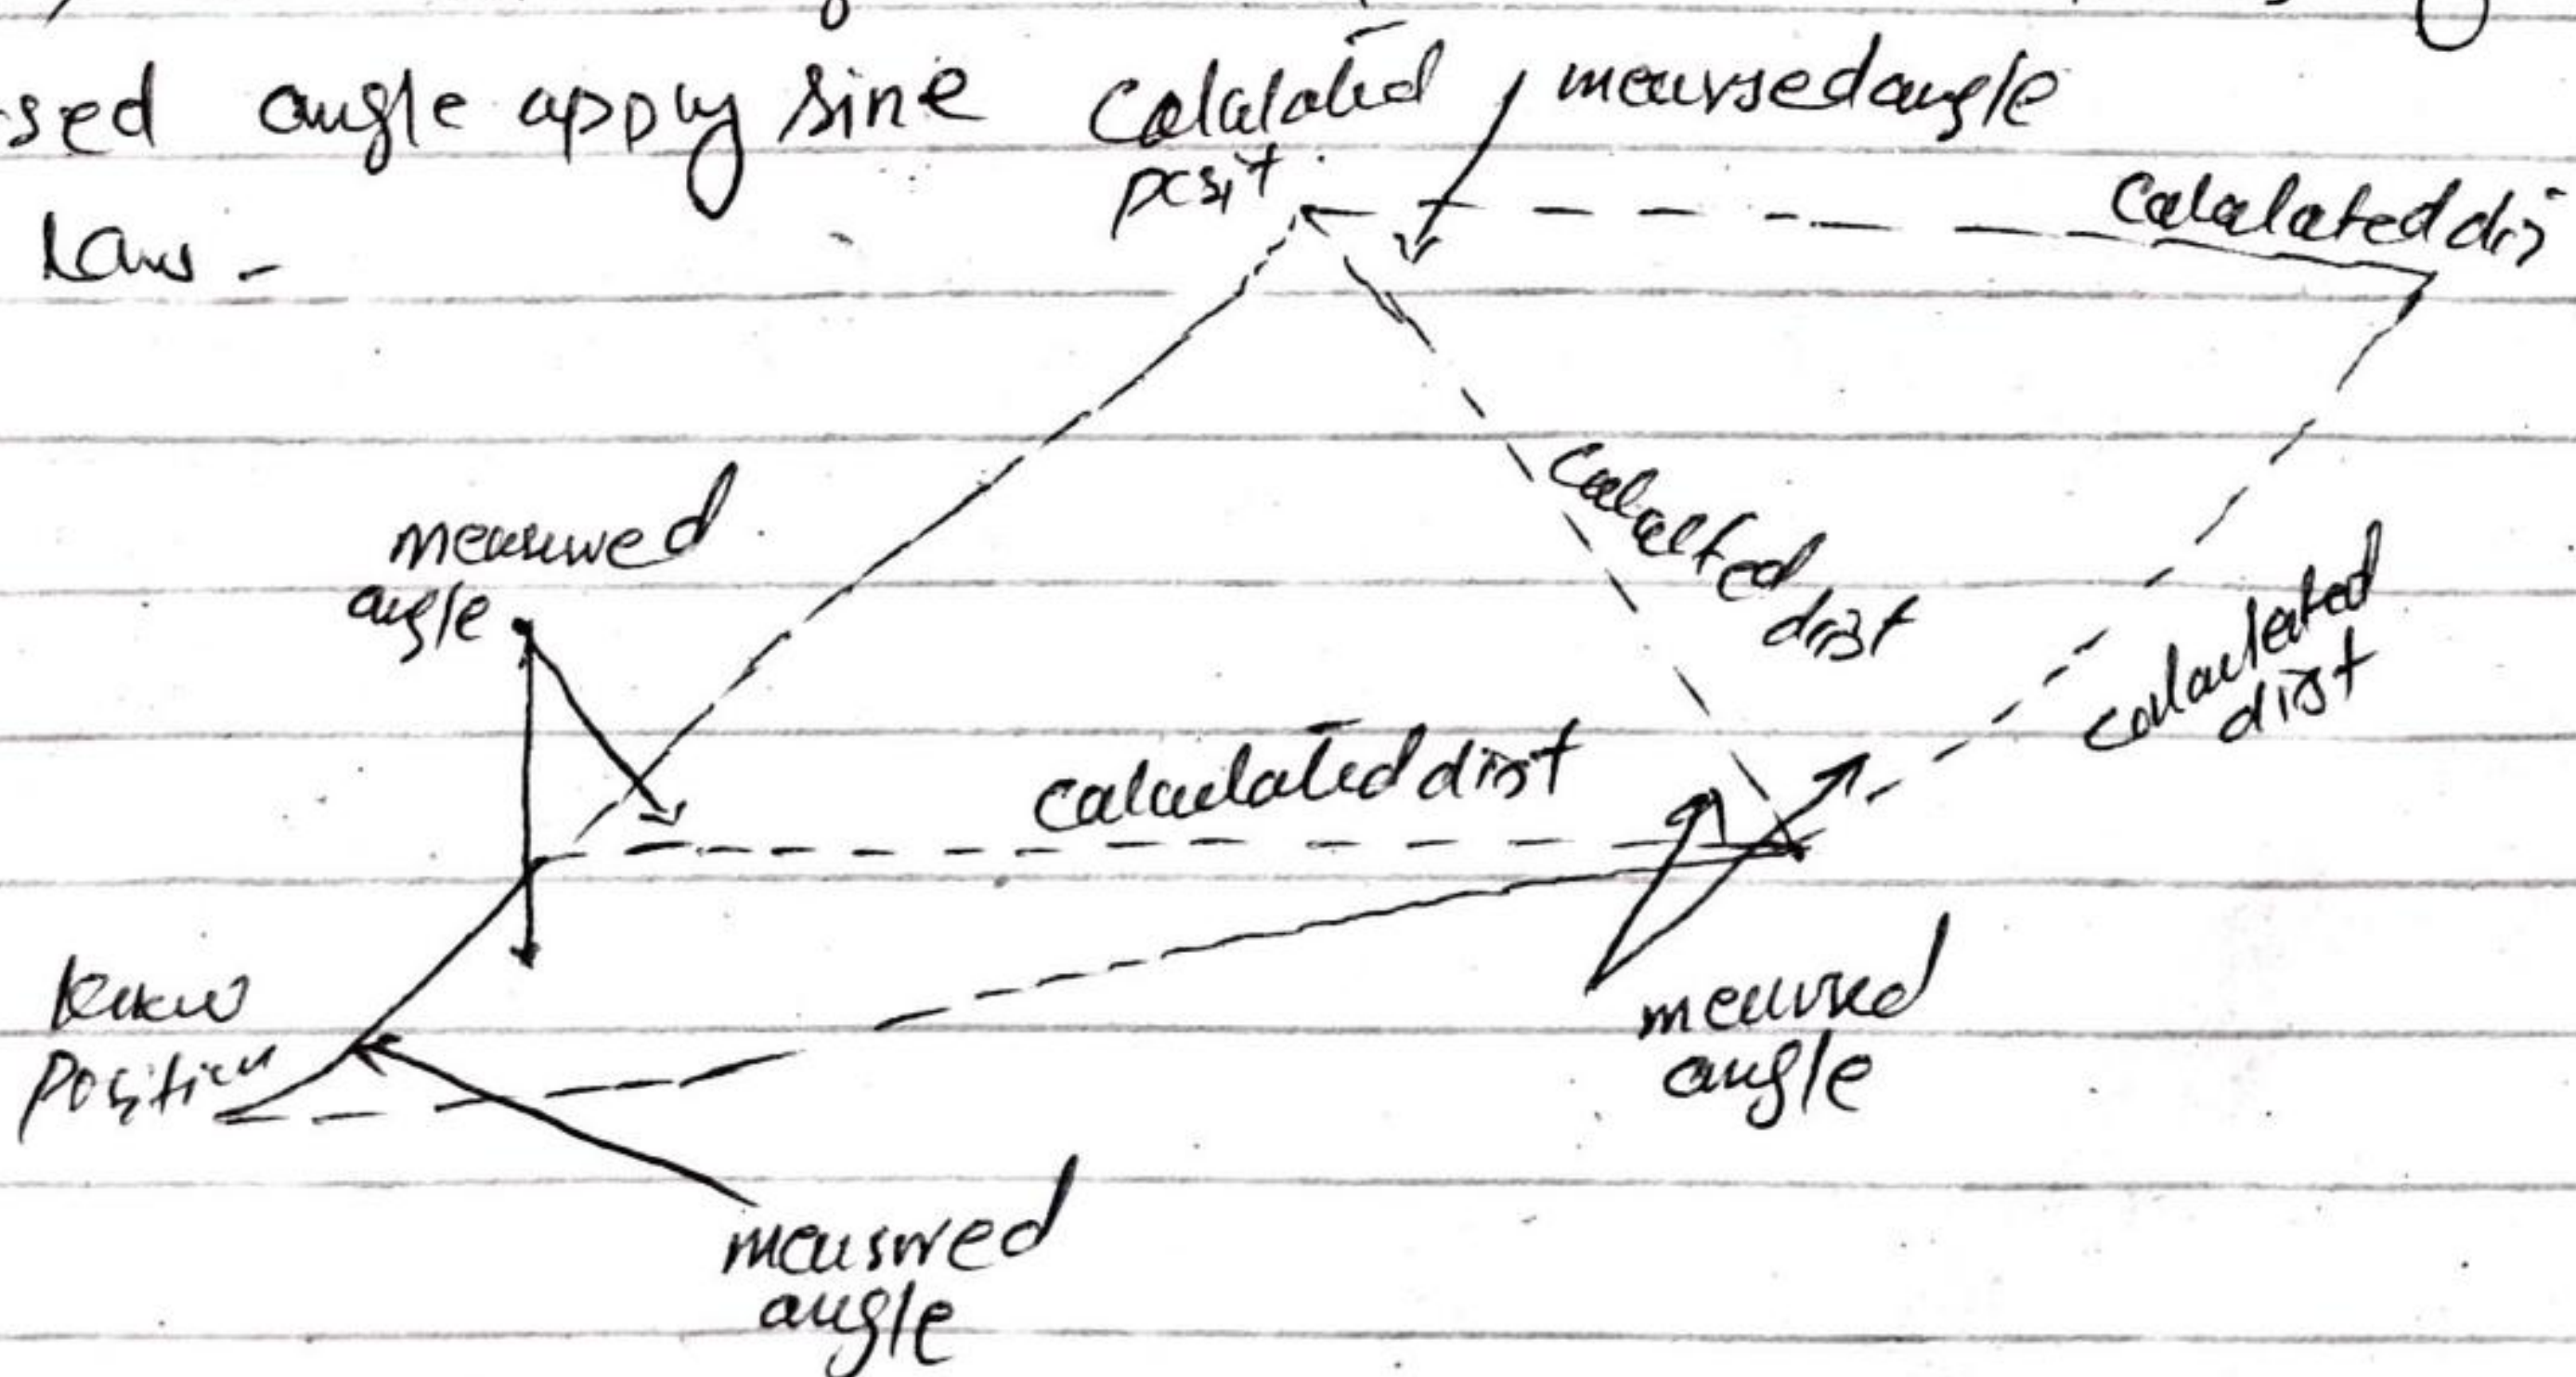 sed angle appry sine
Law -
Calalated
posit.
mearsed angle
Calalated dis
measured
angle
Calalted
dist
calaulated
dist
calculated dist
Know
position
meaured
angle
measured
angle